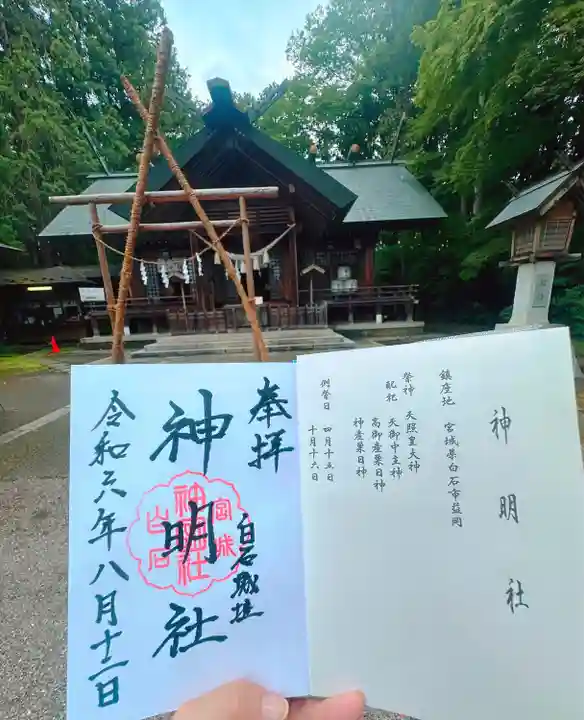 奉拝
神明社
白石城址
令和六年八月十二日
宮城
神明社
白石
神明社
鎮座地 宮城県白石市益岡
祭神 天照皇大神
配祀 天御中主神
高御産巣日神
神産巣日神
例祭日 四月十五日
十月十六日